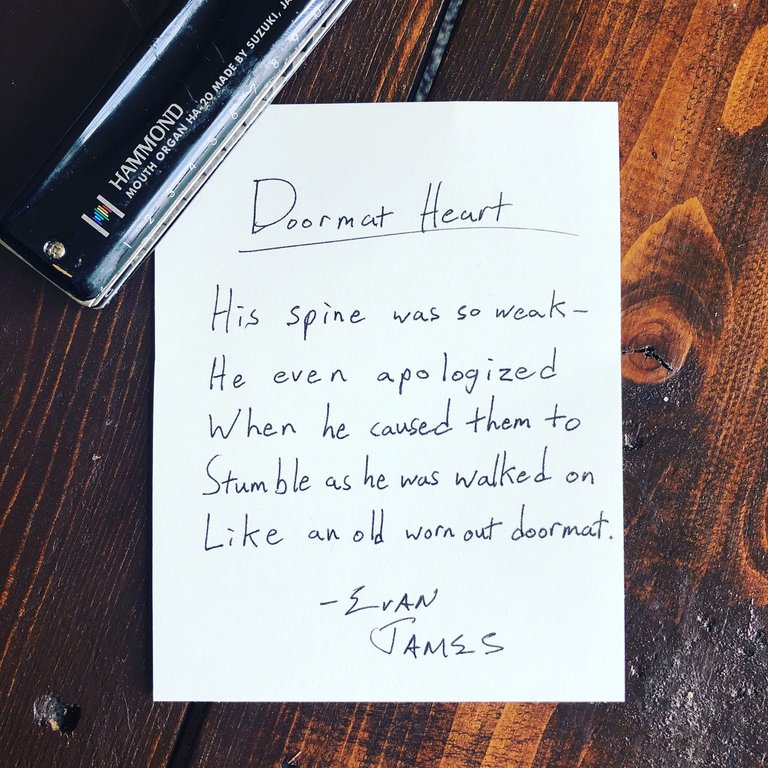 HAMMOND
MOUTH ORGAN HA-20 MADE BY SUZUKI, JA
1 2 3 4 5 6 7 8 9
Doormat Heart
His spine was so weak—
He even apologized
When he caused them to
Stumble as he was walked on
Like an old worn out doormat.
-EVAN
JAMES